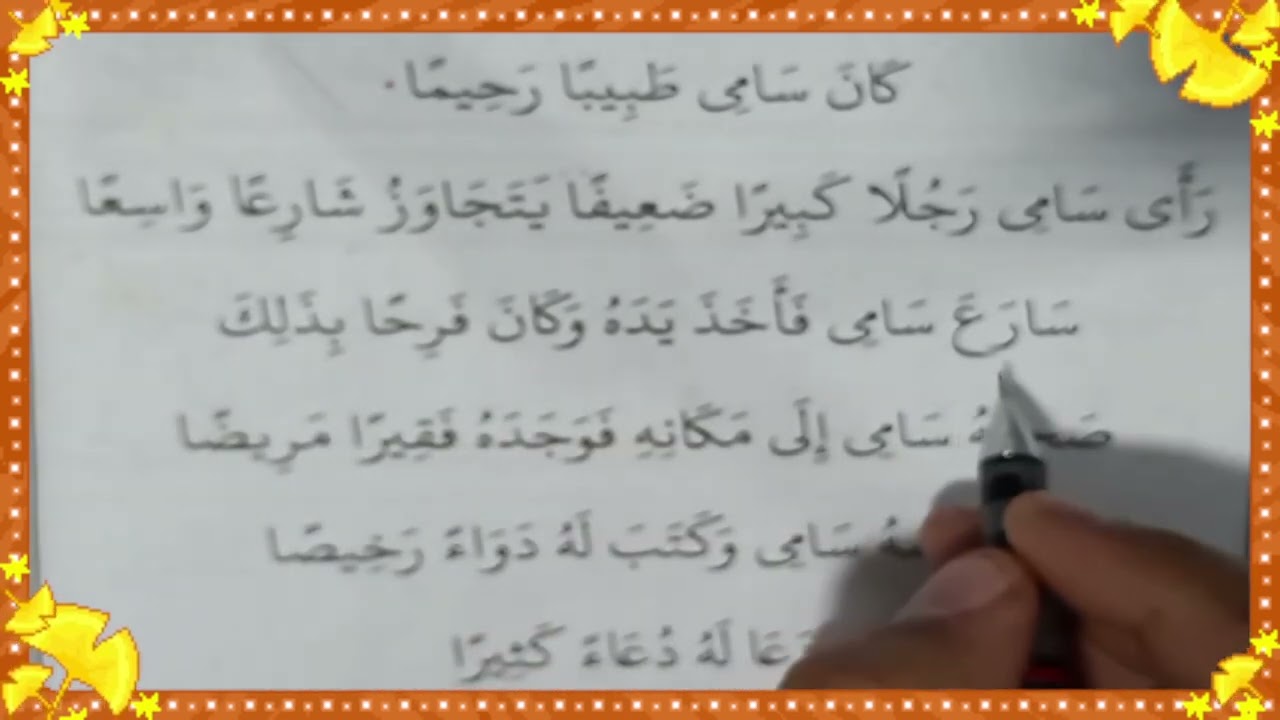 كَانَ سَامِي طَبِيبًا رَحِيمًا.
رَأَى سَامِي رَجُلًا كَبِيرًا ضَعِيفًا يَتَجَاوَزُ شَارِعًا وَاسِعًا
سَارَعَ سَامِي فَأَخَذَ يَدَهُ وَكَانَ فَرِحًا بِذَلِكَ
سَامِي إِلَى مَكَانِهِ فَوَجَدَهُ فَقِيرًا مَرِيضًا
سَامِي وَكَتَبَ لَهُ دَوَاءً رَخِيصًا
لَهُ دُعَاءً كَثِيرًا